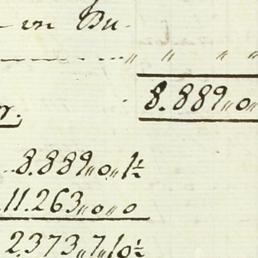 - in Du-
" " " "
8.889,,0,,
r.
8.889,,0,,1½
11.263,,0,,0
2373,,7,,10½